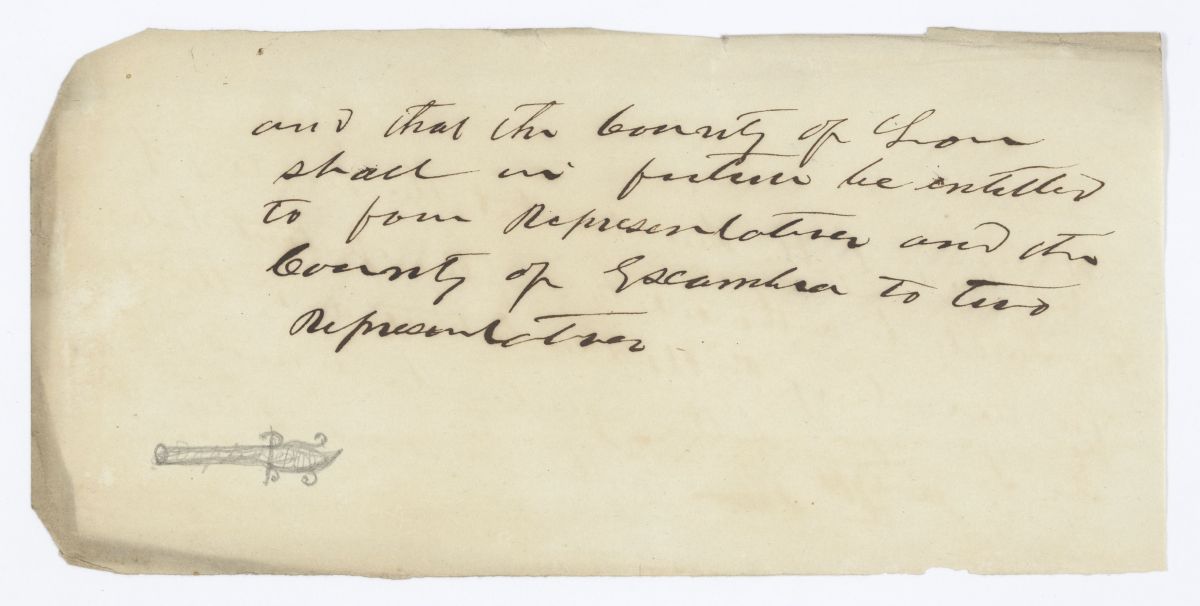 and that the County of Leon
shall in future be entitled
to four Representatives and the
County of Escambia to two
Representatives